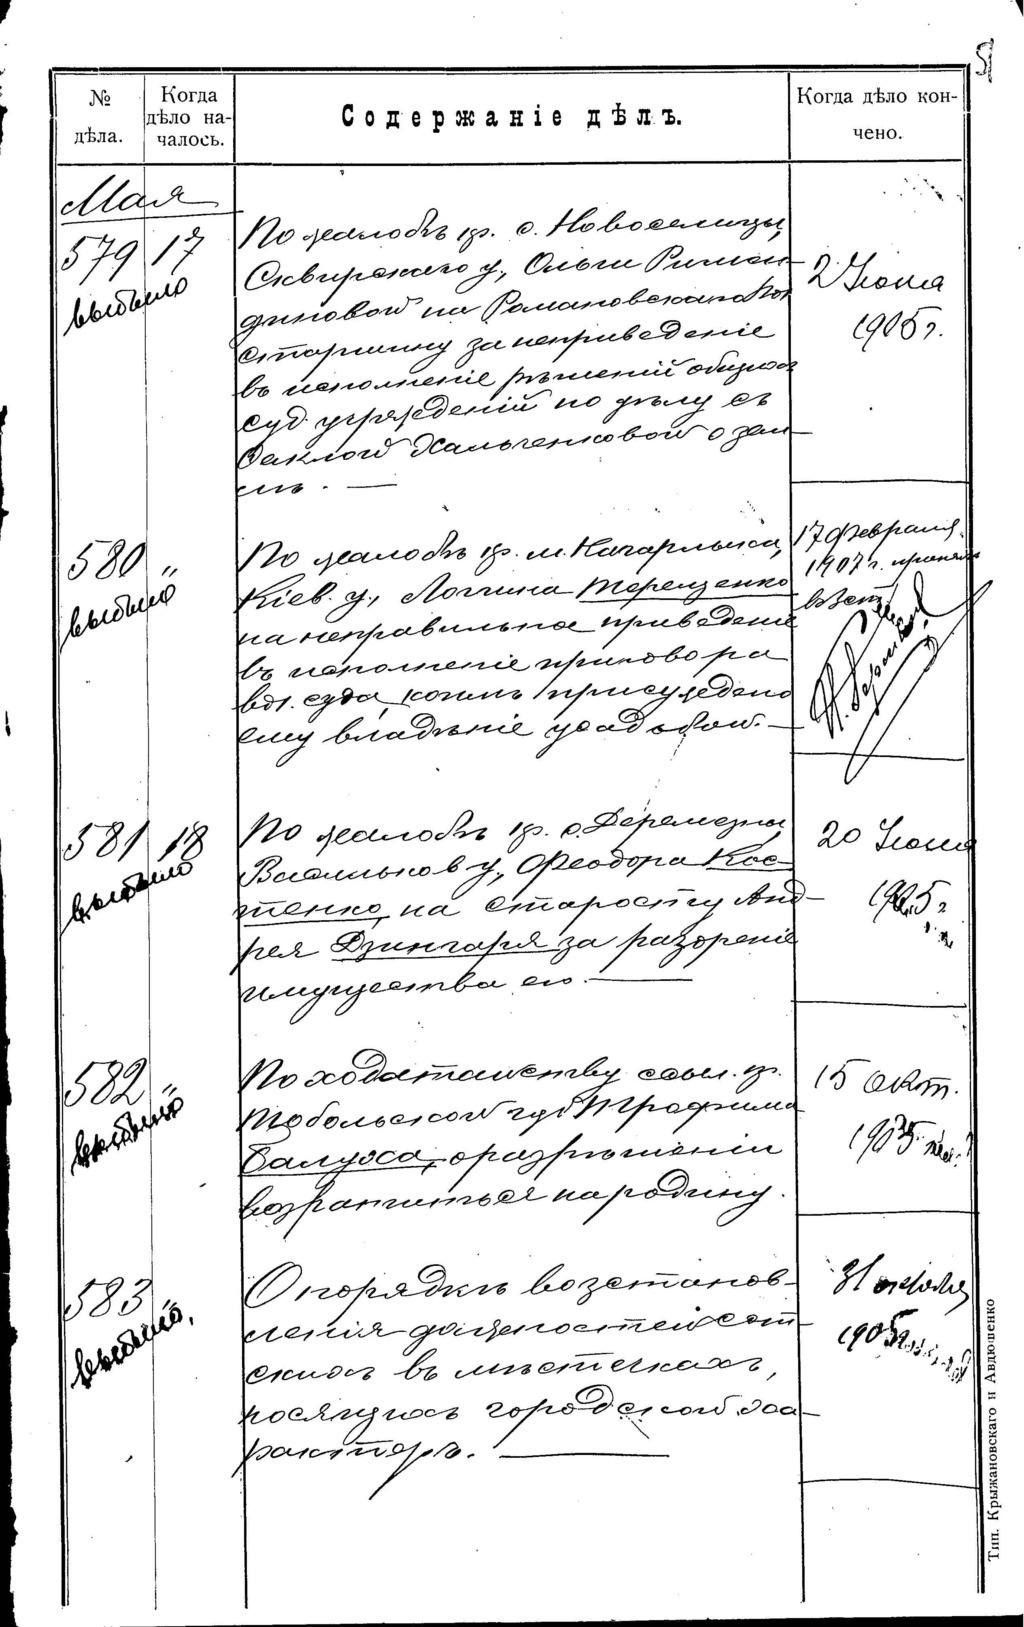 51
№ дѣла.
Когда дѣло на-
чалось.
Содержаніе дѣлъ.
Когда дѣло кон-
чено.
Мая
579 17
выбыло
По жалобѣ кр. с. Новоселицы,
Сквирскаго у., Ольги
на Романовскаго Вол
старшину за неприведеніе
въ исполненіе рѣшеній общихъ
суд. учрежденій по дѣлу съ
Феклой Хальченковой о зем-
лѣ. —
2 Іюня
1905 г.
580 "
выбыло
По жалобѣ кр. м. Кагарлыка,
Кіев. у., Логгина Терещенко
на неправильное приведеніе
въ исполненіе приговора
вол. суда, коимъ присуждено
ему владѣніе усадьбой. —
17 Февраля
1907 г.
581 18
выбыло
По жалобѣ кр. с. Деремезны,
Васильков у., Феодора Кос-
тенко, на старосту Анд-
рея Дзингаря за разореніе
имущества его. —
20 Іюня
1905 г
582 "
выбыло
По ходатайству ссыл. кр.
Тобольской губ Трофима
о разрѣшеніи
возратиться на родину.
15 Окт.
1905
583 "
выбыло.
О порядкѣ возстанов-
ленія должностей сот-
скихъ въ мѣстечкахъ,
носящихъ городской ха-
рактеръ. —
31
1905
Тип. Крыжановскаго и Авдюшенко